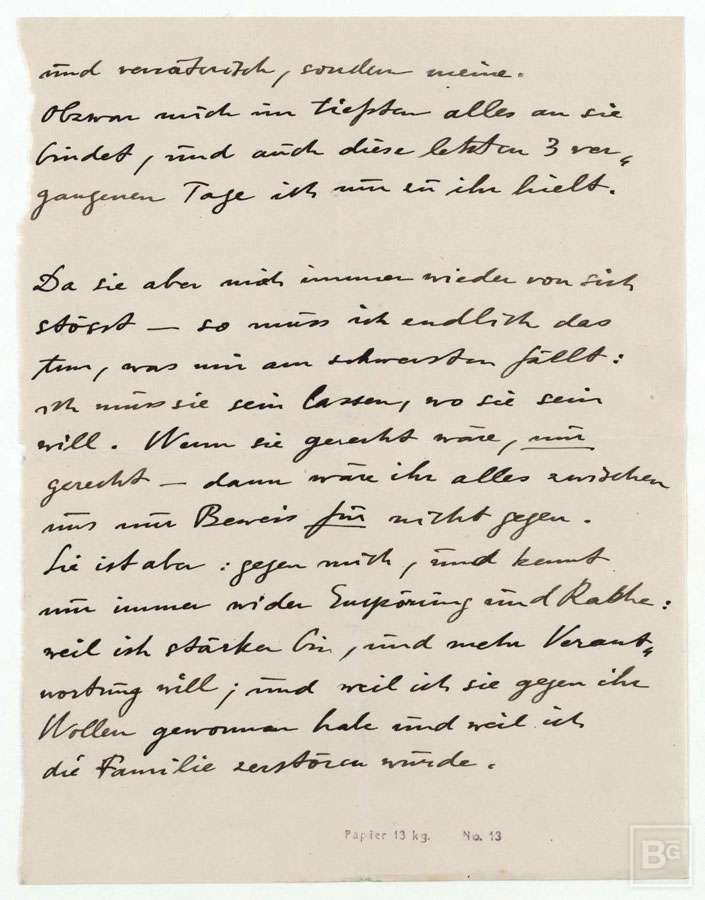 und verräterisch, sondern meine.
Obzwar mich im tiefsten alles an sie
bindet, und auch diese letzten 3 ver-
gangenen Tage ich nur zu ihr hielt.
Da sie aber mich immer wieder von sich
stösst — so muss ich endlich das
tun, was mir am schwersten fällt:
ich muss sie sein lassen, wo sie sein
will. Wenn sie gerecht wäre, nur
gerecht — dann wäre ihr alles zwischen
uns nur Beweis für nicht gegen.
Sie ist aber: gegen mich, und kennt
nur immer wider Empörung und Rache:
weil ich stärker bin, und mehr Verant-
wortung will; und weil ich sie gegen ihr
Wollen gewonnen habe und weil ich
die Familie zerstören würde.
Papier 13 kg. No. 13
BG